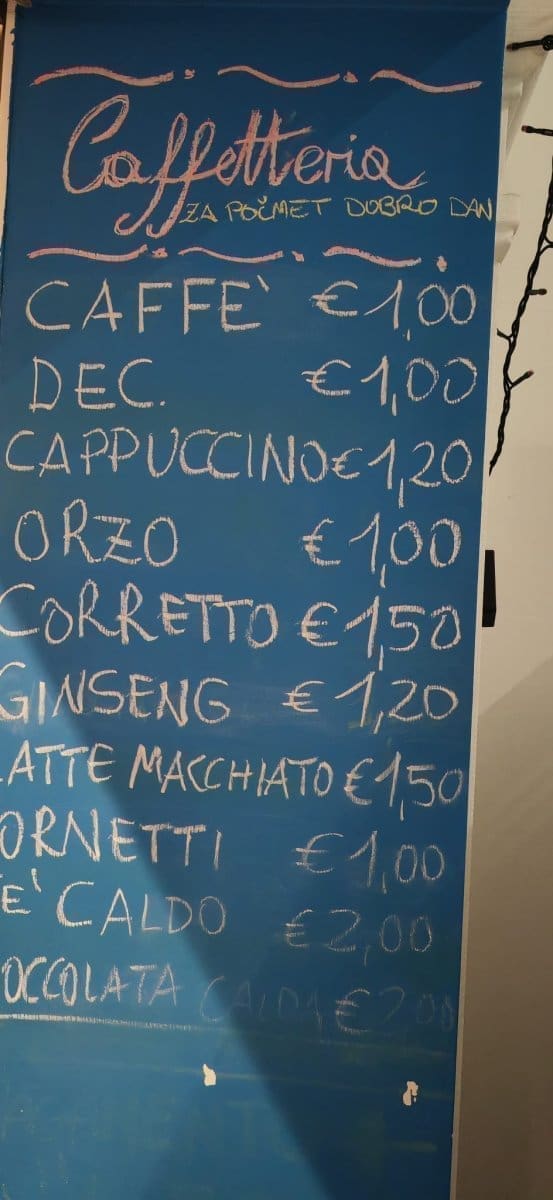 Caffetteria
ZA POČMET DOBRO DAN
CAFFE` €1,00
DEC. €1,00
CAPPUCCINO €1,20
ORZO €1,00
CORRETTO €1,50
GINSENG €1,20
LATTE MACCHIATO €1,50
ORNETTI €1,00
E` CALDO €2,00
OCCOLATA CALDA €2,00